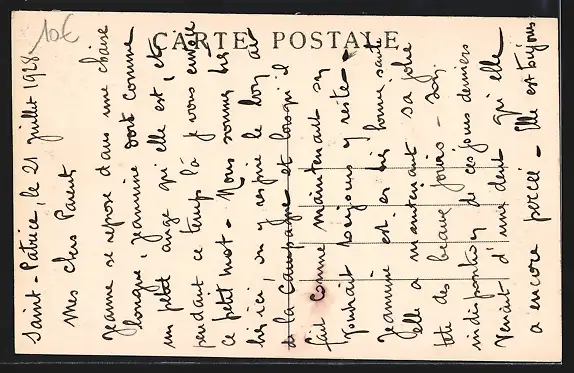 10€
CARTE POSTALE
Saint-Patrice, le 21 juillet 1928
Mes chers Parents
Jeanne se repose dans une chaise
longue, Jeannine dort comme
un petit ange qu'elle est, et
pendant ce temps là je vous envoie
ce petit mot - Nous sommes très
bien ici, on y respire le bon air
de la campagne et lorsqu'il
fait comme maintenant on
souhait toujours y rester -
Jeannine est en très bonne santé
elle a maintenant sa jolie
tête des beaux jours - Son
indisposition de ces jours derniers
venait d'une dent qu'elle
a encore percée - Elle est toujours